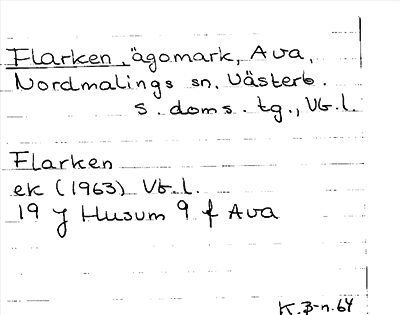 Flarken, ägomark, Ava,
Nordmalings sn. Västerb.
s. doms. tg., Vb.l.
Flarken
ek (1963) Vb.l.
19 J Husum 9 f Ava
K.B-n.64